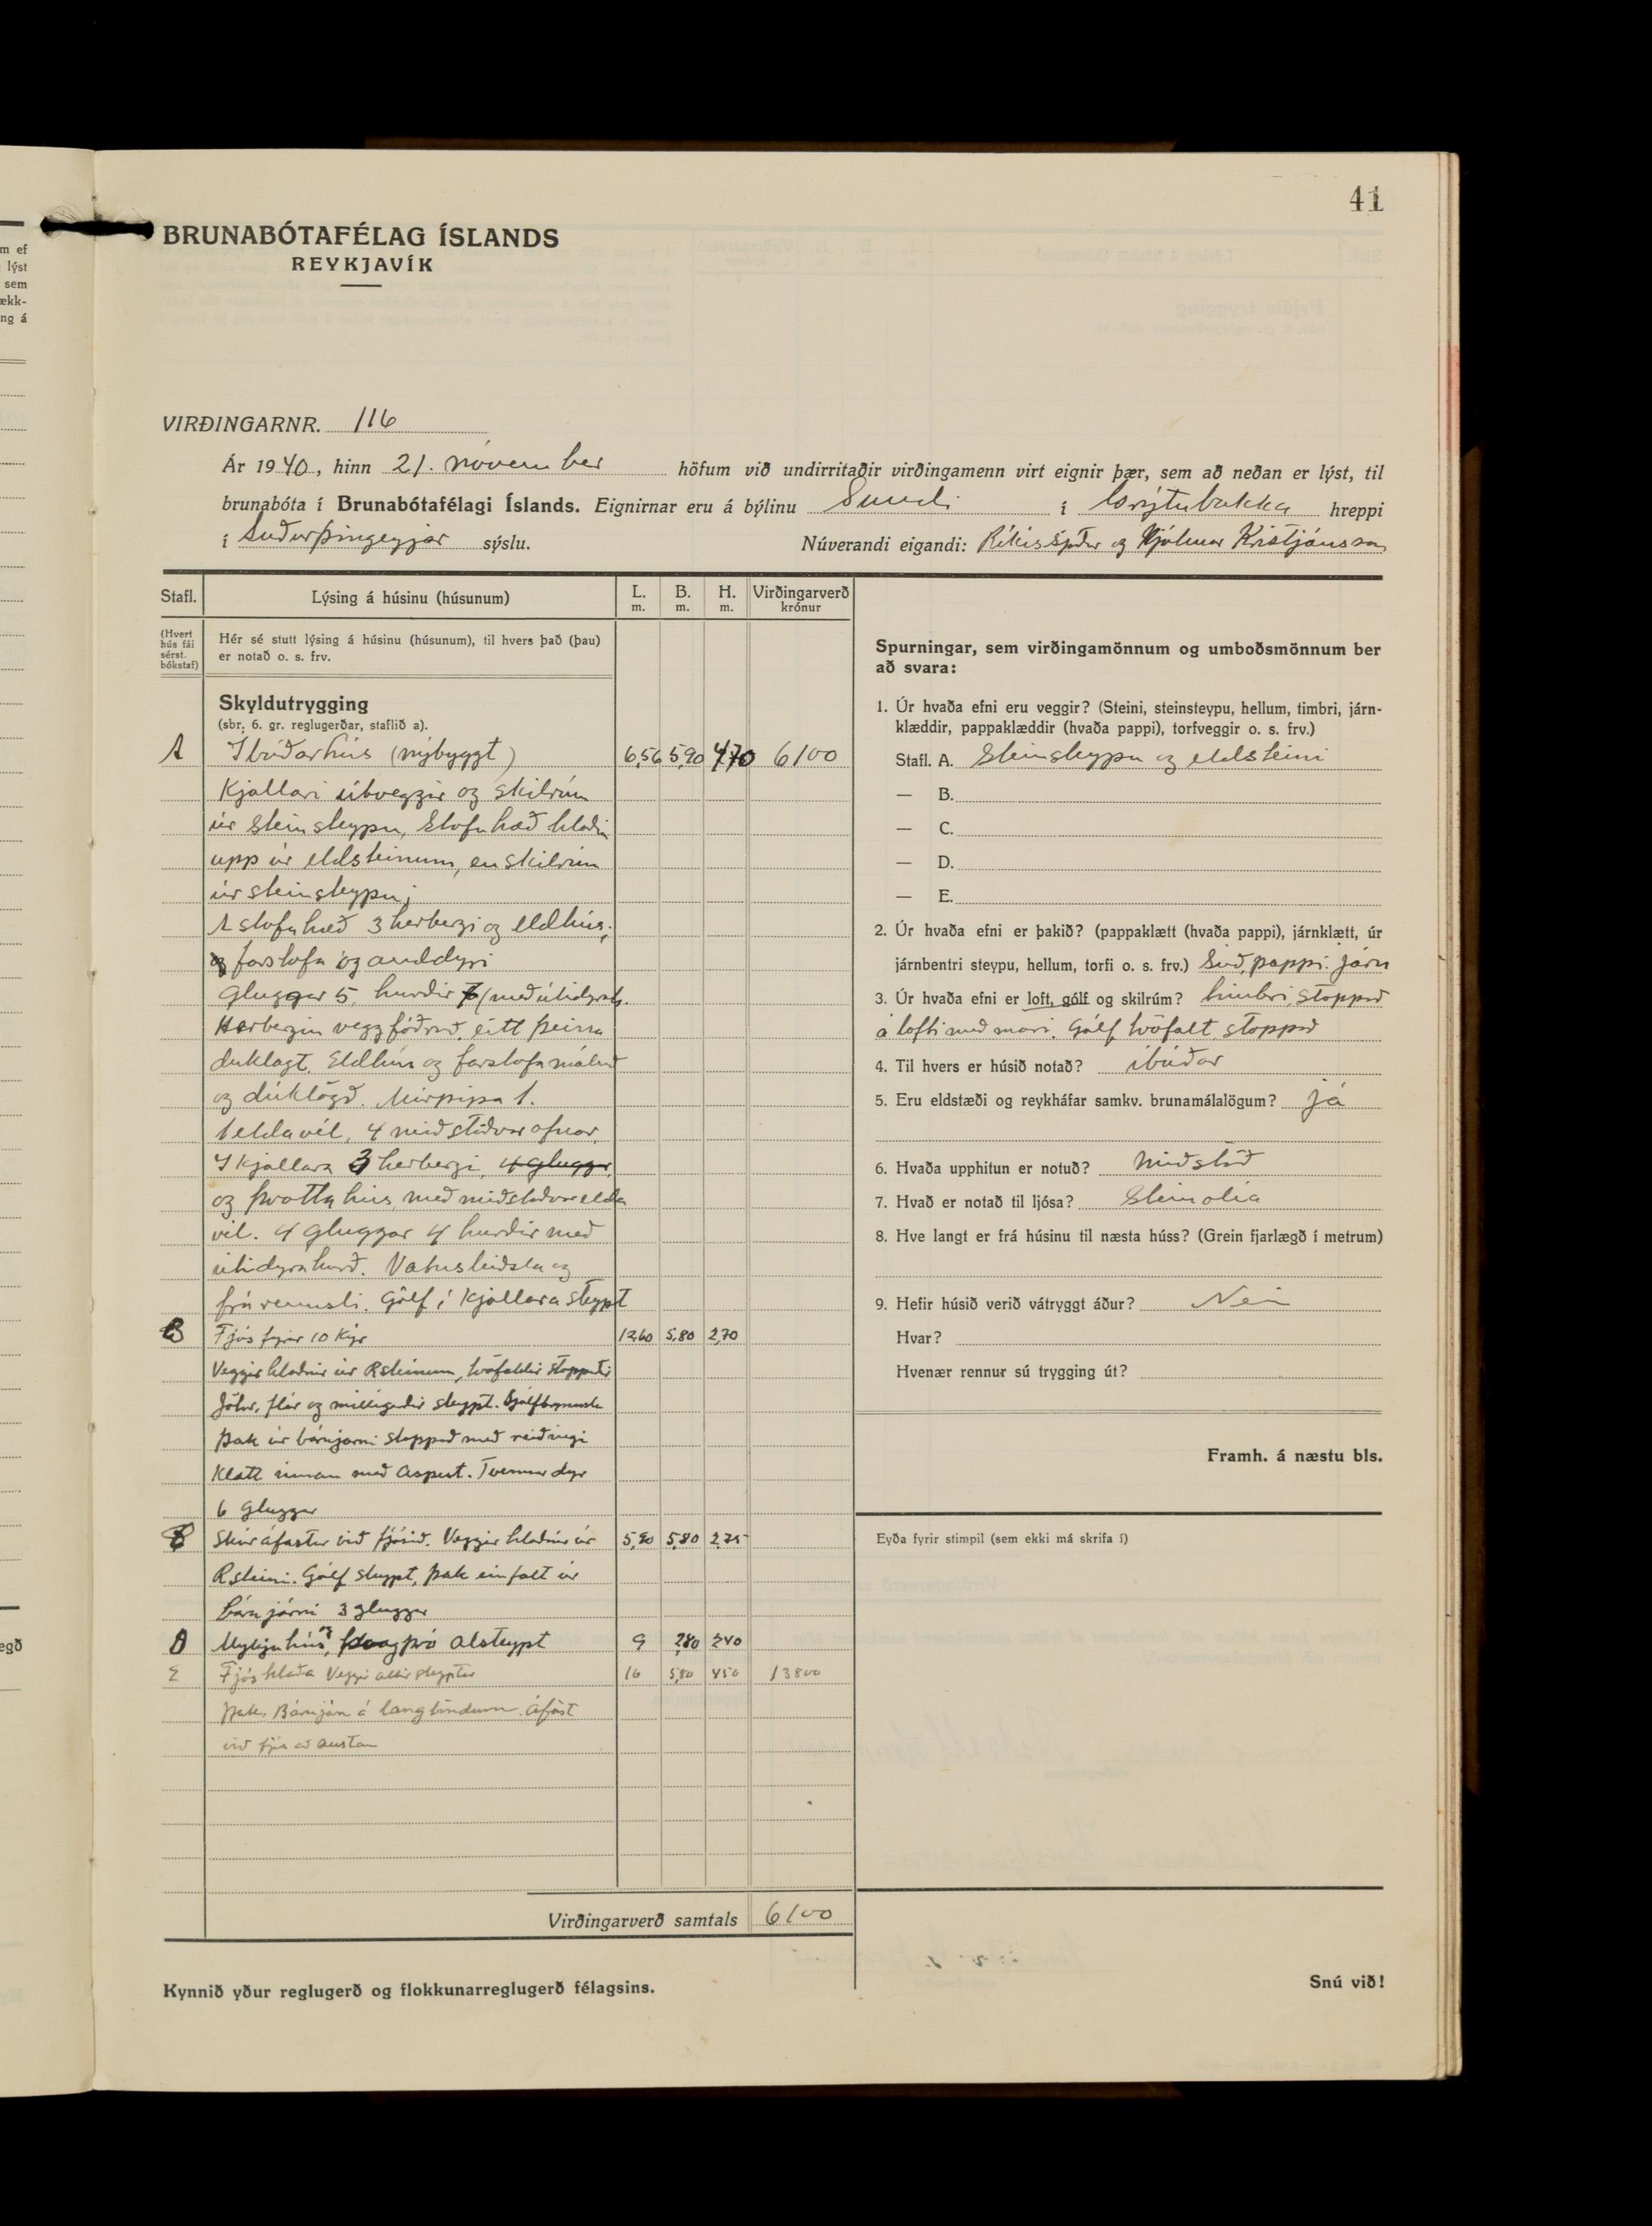 41
BRUNABÓTAFÉLAG ÍSLANDS
REYKJAVÍK
VIRÐINGARNR. 116
Ár 1940, hinn 21. november höfum við undirritaðir virðingamenn virt eignir þær, sem að neðan er lýst, til
brunabóta í Brunabótafélagi Íslands. Eignirnar eru á býlinu Sundi í Grýtubakka hreppi
í Suðurþingeyjar sýslu. Núverandi eigandi: Ríkissjóður og Hjálmar Kristjánsson
Stafl. Lýsing á húsinu (húsunum) L. m. B. m. H. m. Virðingarverð krónur
(Hvert hús fái sérst. bókstaf)
Hér sé stutt lýsing á húsinu (húsunum), til hvers það (þau)
er notað o. s. frv.
Skyldutrygging
(sbr. 6. gr. reglugerðar, staflið a).
A Íbúðarhús (nýbyggt) 6,56 5,90 4,70 6100
Kjallari útveggir og skilrúm
úr steinsteypu, Stofuhæð hlaðin
upp úr eldsteinum, en skilrúm
úr steinsteypu;
Á stofuhæð 3 herbergi og eldhús;
og forstofa og anddyri
Gluggar 5, hurðir 7 (með útidyrah.
Herbergin veggfóðruð, eitt þeirra
duklagt, Eldhús og forstofa máluð
og dúklögð. Múrpípa 1.
1 eldavél, 4 miðstöðvarofnar,
Í kjallara 3 herbergi, 4 gluggar,
og þvottahús, með miðstöðvarelda
vél. 4 gluggar 4 hurðir með
útidyrahurð. Vatnsleiðsla og
frárennsli. Gólf í kjallara steypt
B Fjós fyrir 10 kýr 12,60 5,80 2,70
Veggir hlaðnir úr Rsteinum, tvöfaldir stoppaðir
Jötur, flór og milligerðir steypt.
Þak úr bárujárni stoppað með reiðingi
Klætt innan með Aspest. Tvennar dyr
6 Gluggar
Skúr áfastur við fjósið. Veggir hlaðnir úr 5,80 5,80 2,75
Rsteini. Gólf steypt, þak einfalt úr
bárujárni 3 gluggar
D Mykjuhús og þró alsteypt 9 2,80 240
E Fjóshlaða Veggir allir steyptir 16 5,80 450 13800
Þak. Bárujárn á langböndum. Áfast
við fjós að austan
Virðingarverð samtals 6100
Kynnið yður reglugerð og flokkunarreglugerð félagsins.
Spurningar, sem virðingamönnum og umboðsmönnum ber
að svara:
1. Úr hvaða efni eru veggir? (Steini, steinsteypu, hellum, timbri, járn-
klæddir, pappaklæddir (hvaða pappi), torfveggir o. s. frv.)
Stafl. A. Steinsteypu og eldsteini
— B.
— C.
— D.
— E.
2. Úr hvaða efni er þakið? (pappaklætt (hvaða pappi), járnklætt, úr
járnbentri steypu, hellum, torfi o. s. frv.) Súð, pappi. járn
3. Úr hvaða efni er loft, gólf og skilrúm? timbri, stoppað
á lofti með mori. Gólf tvöfalt, stoppað
4. Til hvers er húsið notað? íbúðar
5. Eru eldstæði og reykháfar samkv. brunamálalögum? já
6. Hvaða upphitun er notuð? Miðstöð
7. Hvað er notað til ljósa? Steinolía
8. Hve langt er frá húsinu til næsta húss? (Grein fjarlægð í metrum)
9. Hefir húsið verið vátryggt áður? Nei
Hvar?
Hvenær rennur sú trygging út?
Framh. á næstu bls.
Eyða fyrir stimpil (sem ekki má skrifa í)
Snú við!